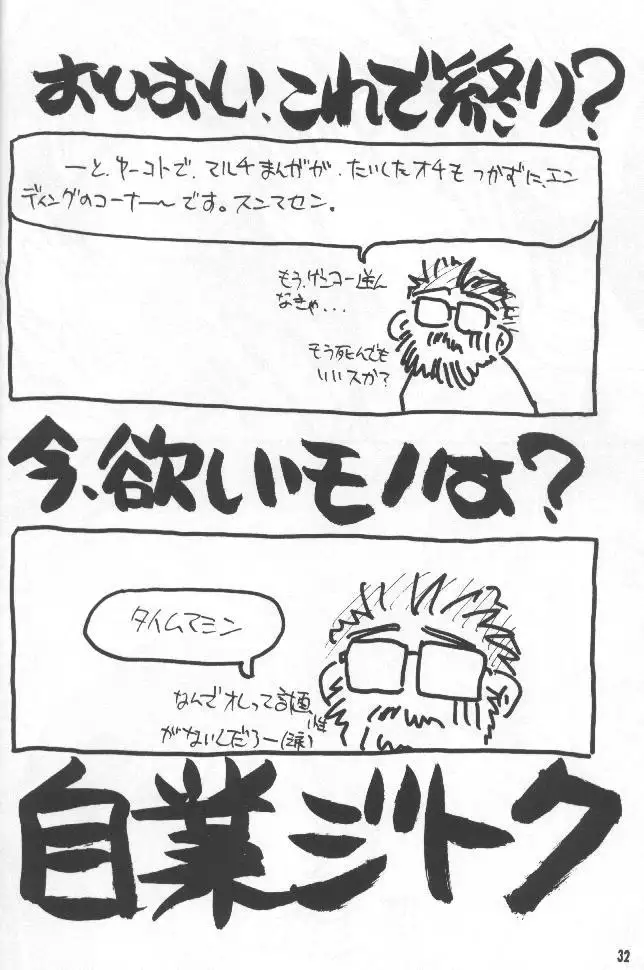 おいおい、これで終り？
ーと、ゆーコトで、マルチまんがが、たいしたオチもつかずに、エン
ディングのコーナー〜です。スンマセン。
もう、ゲンコー送ん
なきゃ...
もう死んでも
いいスか？
今、欲しいモノは？
タイムマシン
なんでオレって計画性
がないんだろー（涙）
自業ジトク
32